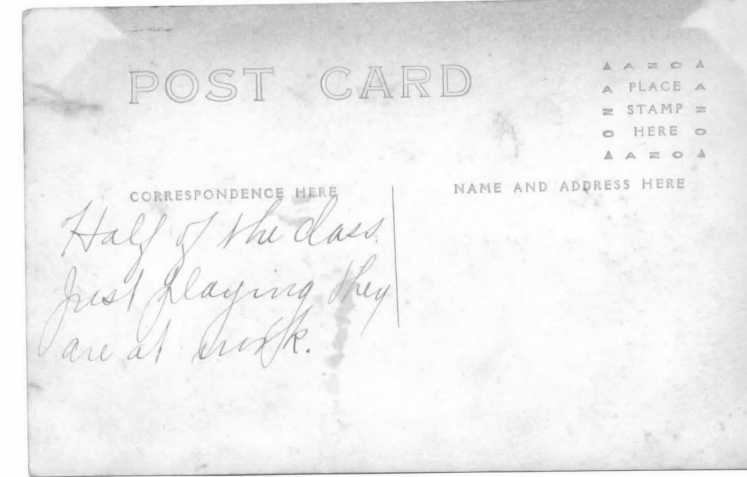 POST CARD
▲ A Z O ▲
A PLACE A
Z STAMP Z
O HERE O
▲ A Z O ▲
CORRESPONDENCE HERE
NAME AND ADDRESS HERE
Half of the class.
Just playing they
are at work.